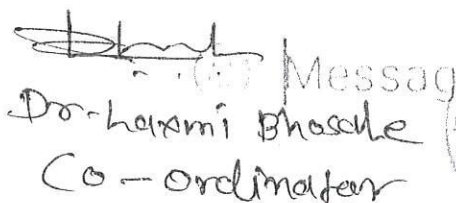 Messag
Dr. Laxmi Bhosale
Co-ordinator